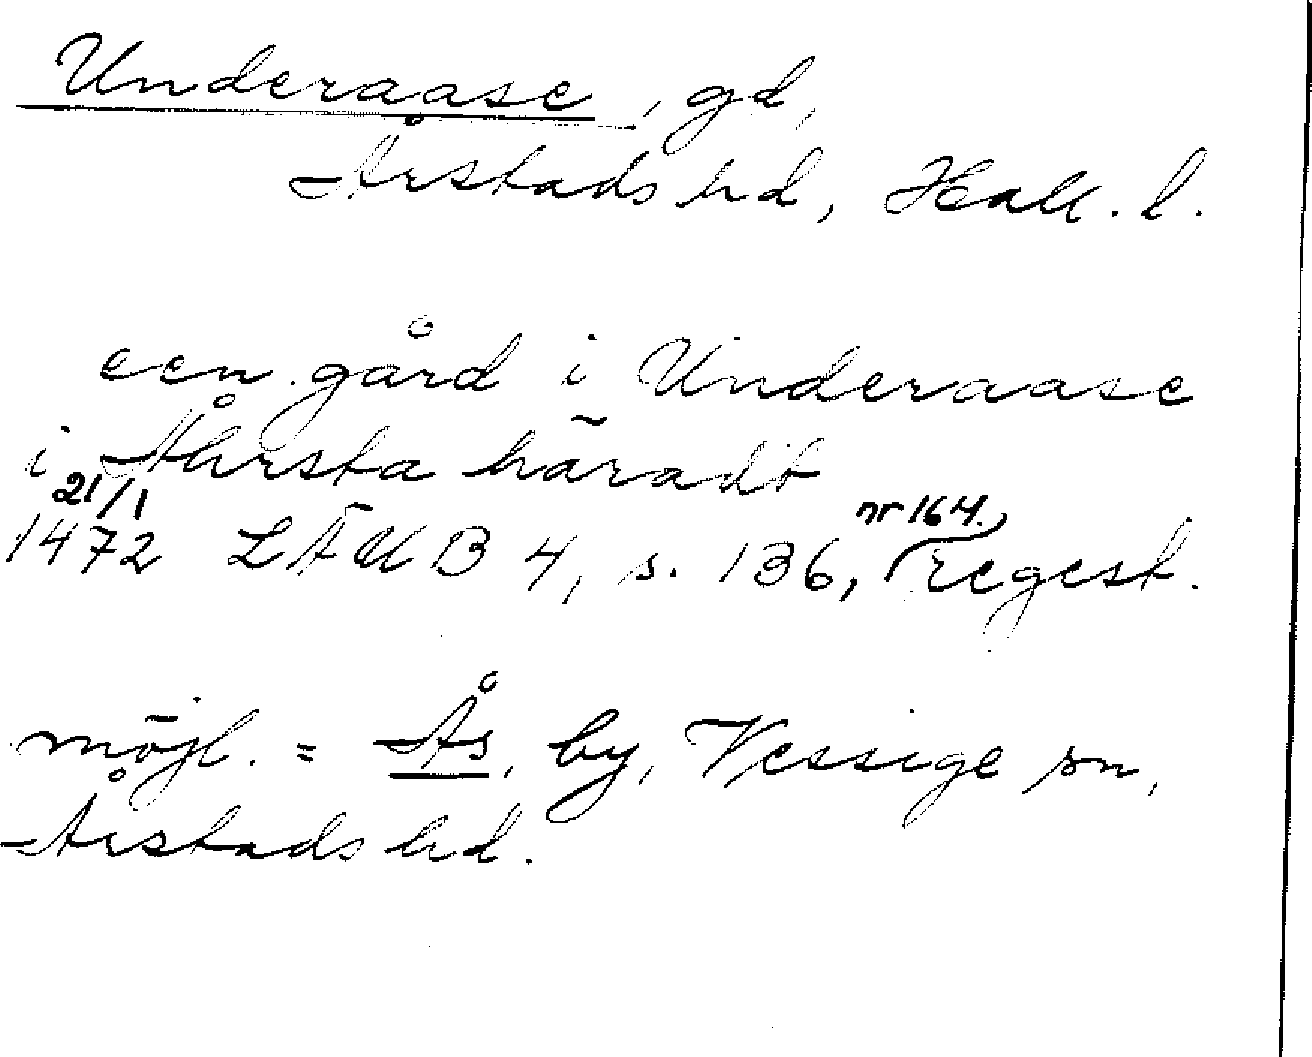 Underaase, gd,
Årstads hd, Hall. l.
een gård i Underaase
i Åhrsta häradt
21/1 nr 164.
1472 LÄUB 4, s. 136, regest.
möjl. = Ås, by, Vessige sn,
Årstads hd.